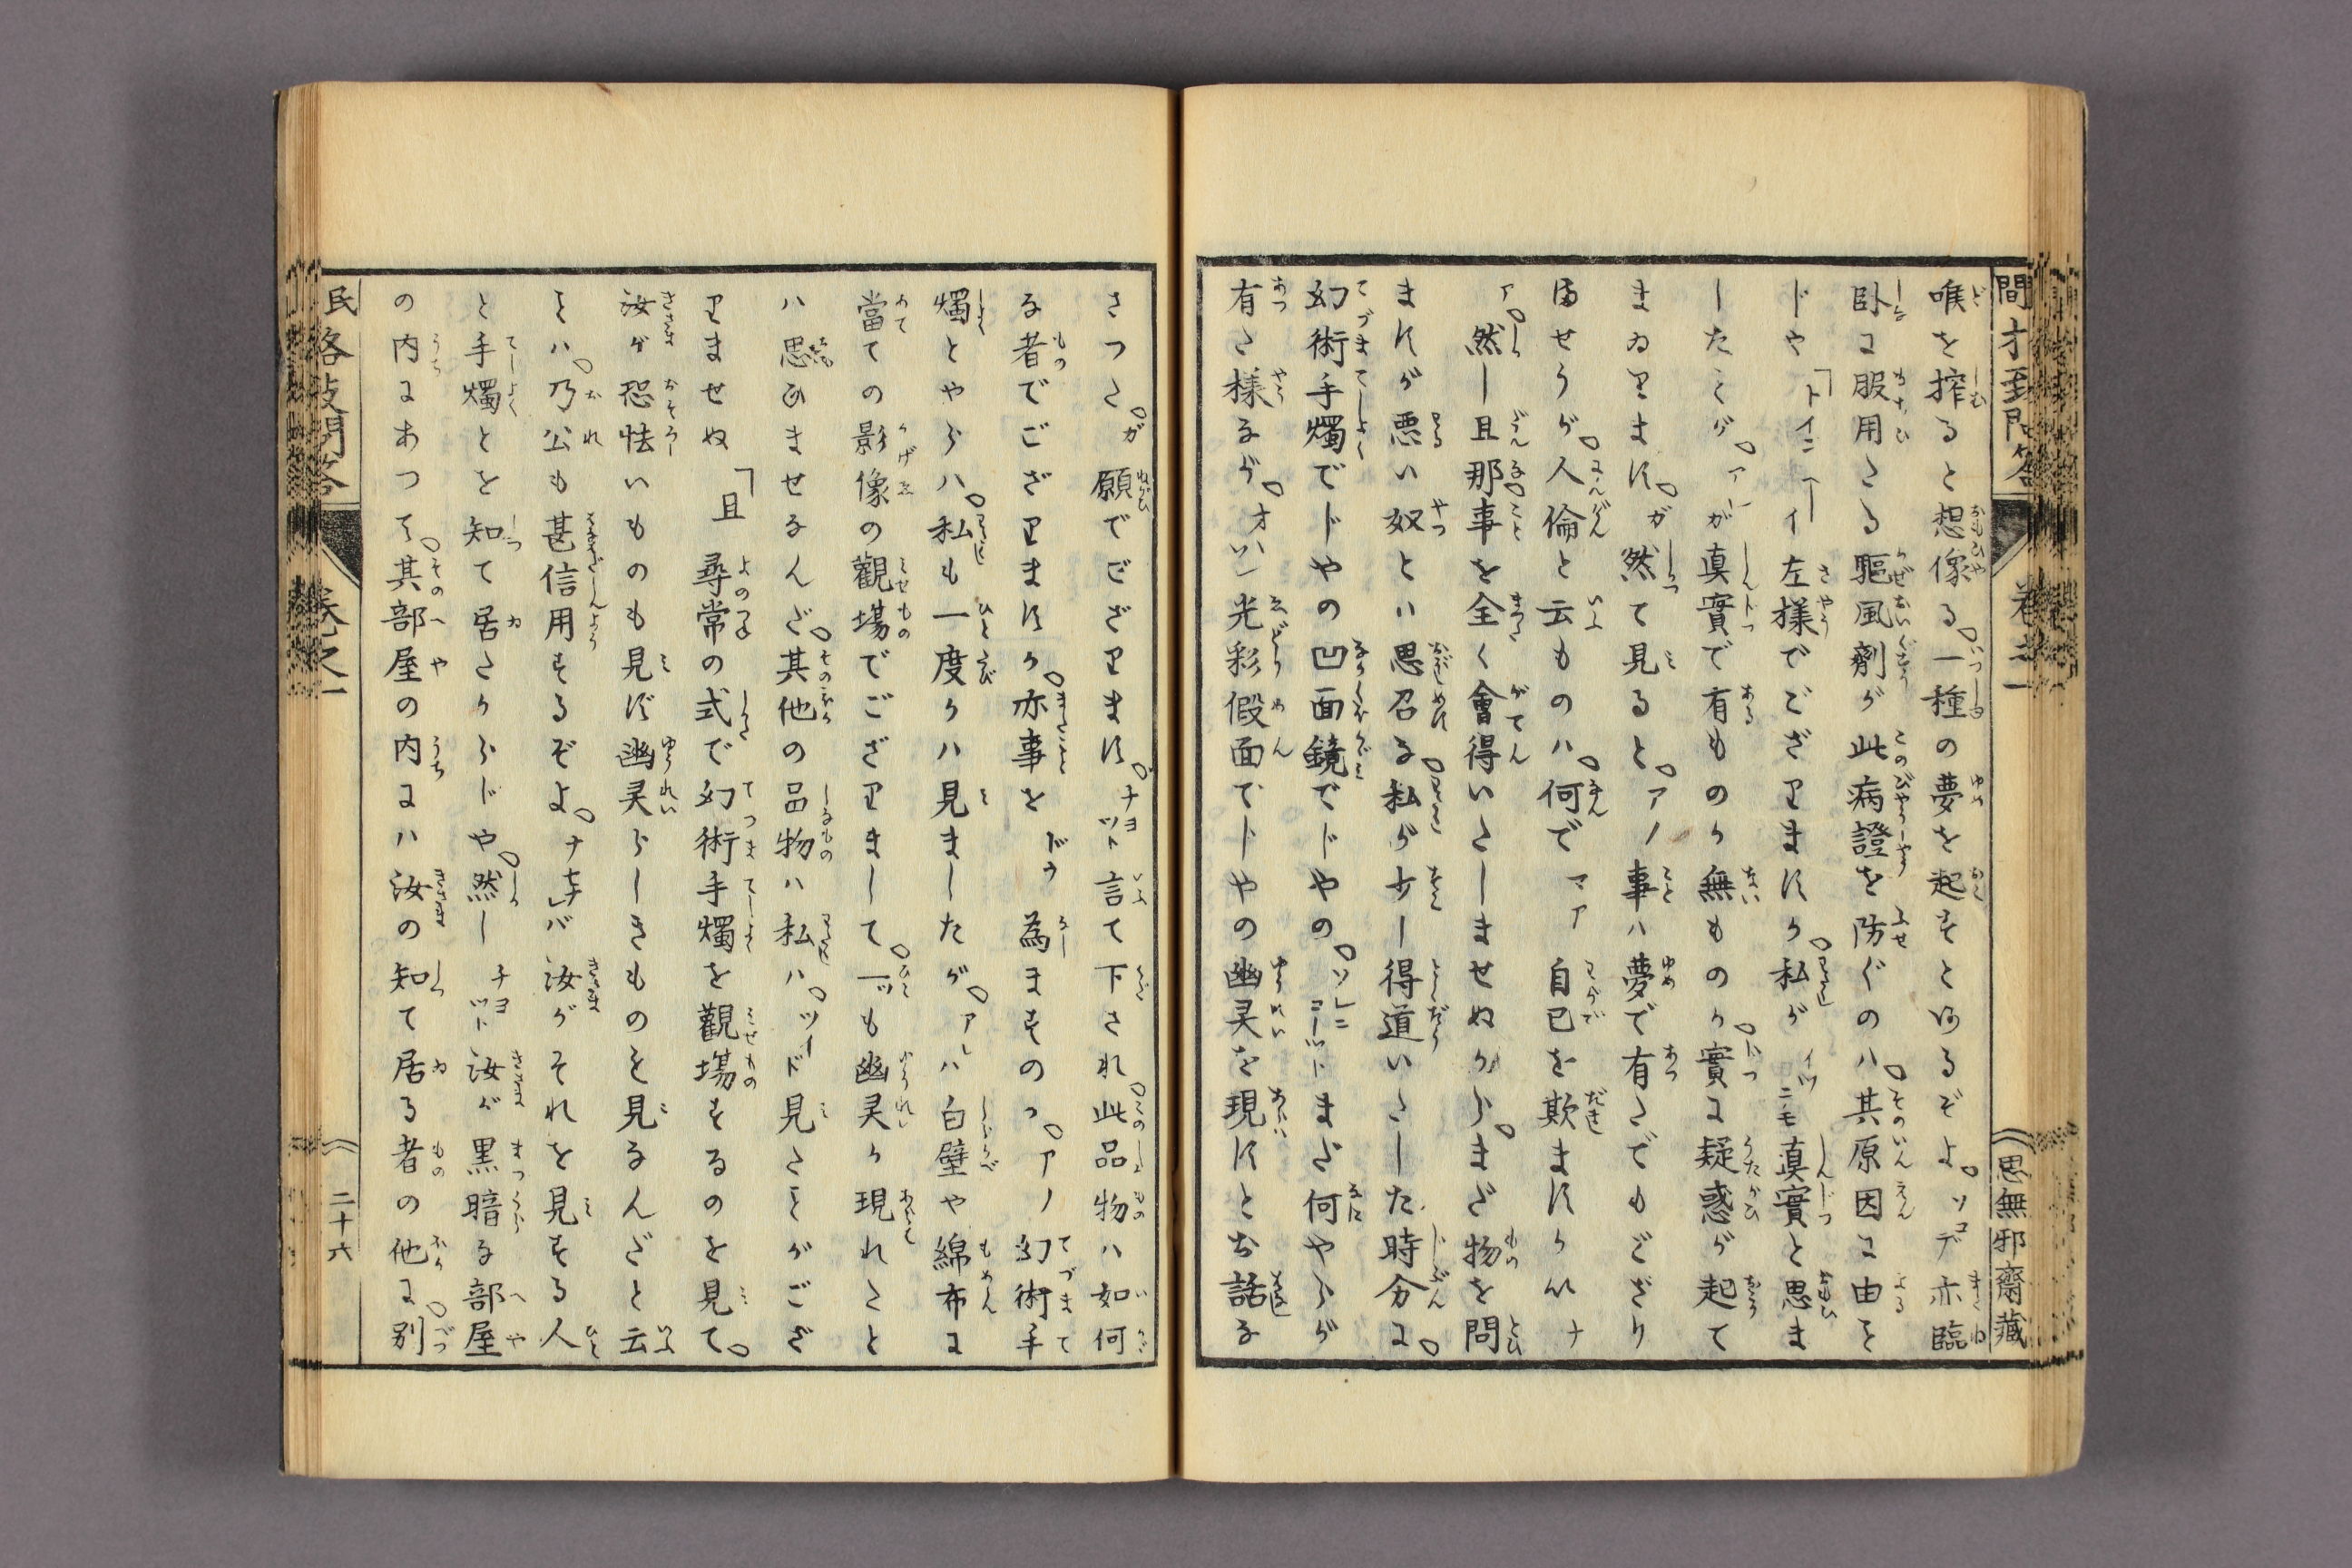 喉を搾ると想像る一種の夢を起すと何るぞよソコデ亦臨
臥に服用たる驅風劑が此病證を防ぐのハ其原因に由を
ドや「トイニ イ左樣でござりますか私がイツニモ真實と思ま
したとが アーが真實で有ものか無ものか實に疑惑が起て
まゐりますガ然て見るとアノ事ハ夢で有たでもござり
ませうが人倫と云ものハ何でマア自己を欺ますかいナ
ア然し且那事を全く會得いたしませぬからまだ物を問
ますが悪い奴とハ思召な私が少し得道いたした時分に
幻術手燭でドやの凹面鏡でドやのソレニコーツトまだ何やらが
有た樣なが オハン光彩假面でドやの幽灵を現すとお話な
さつたガ願でござりますチヨツト言て下され此品物ハ如何
な者でござりますか亦事をドウ為ますのつアノ幻術手
燭とやらハ私も一度かハ見ましたがアレハ白壁や綿布に
當ての影像の觀場でござりまして一ツも幽灵か現れたと
ハ思ひませなんだ其他の品物ハ私ハツードド見たとがござ
りませぬ「且 尋常の式で幻術手燭を觀場するのを見て
汝が恐怯いものも見ず幽灵らしきものを見なんだと云
とハ乃公も甚信用するぞよナゼナレバ汝がそれを見する人
と手燭とを知て居たからドや然しチヨツト汝が黒暗な部屋
の内にあつて其部屋の内にハ汝の知て居る者の他に別
卷之一
思無邪齋藏
民格致問答
卷之一
二十六